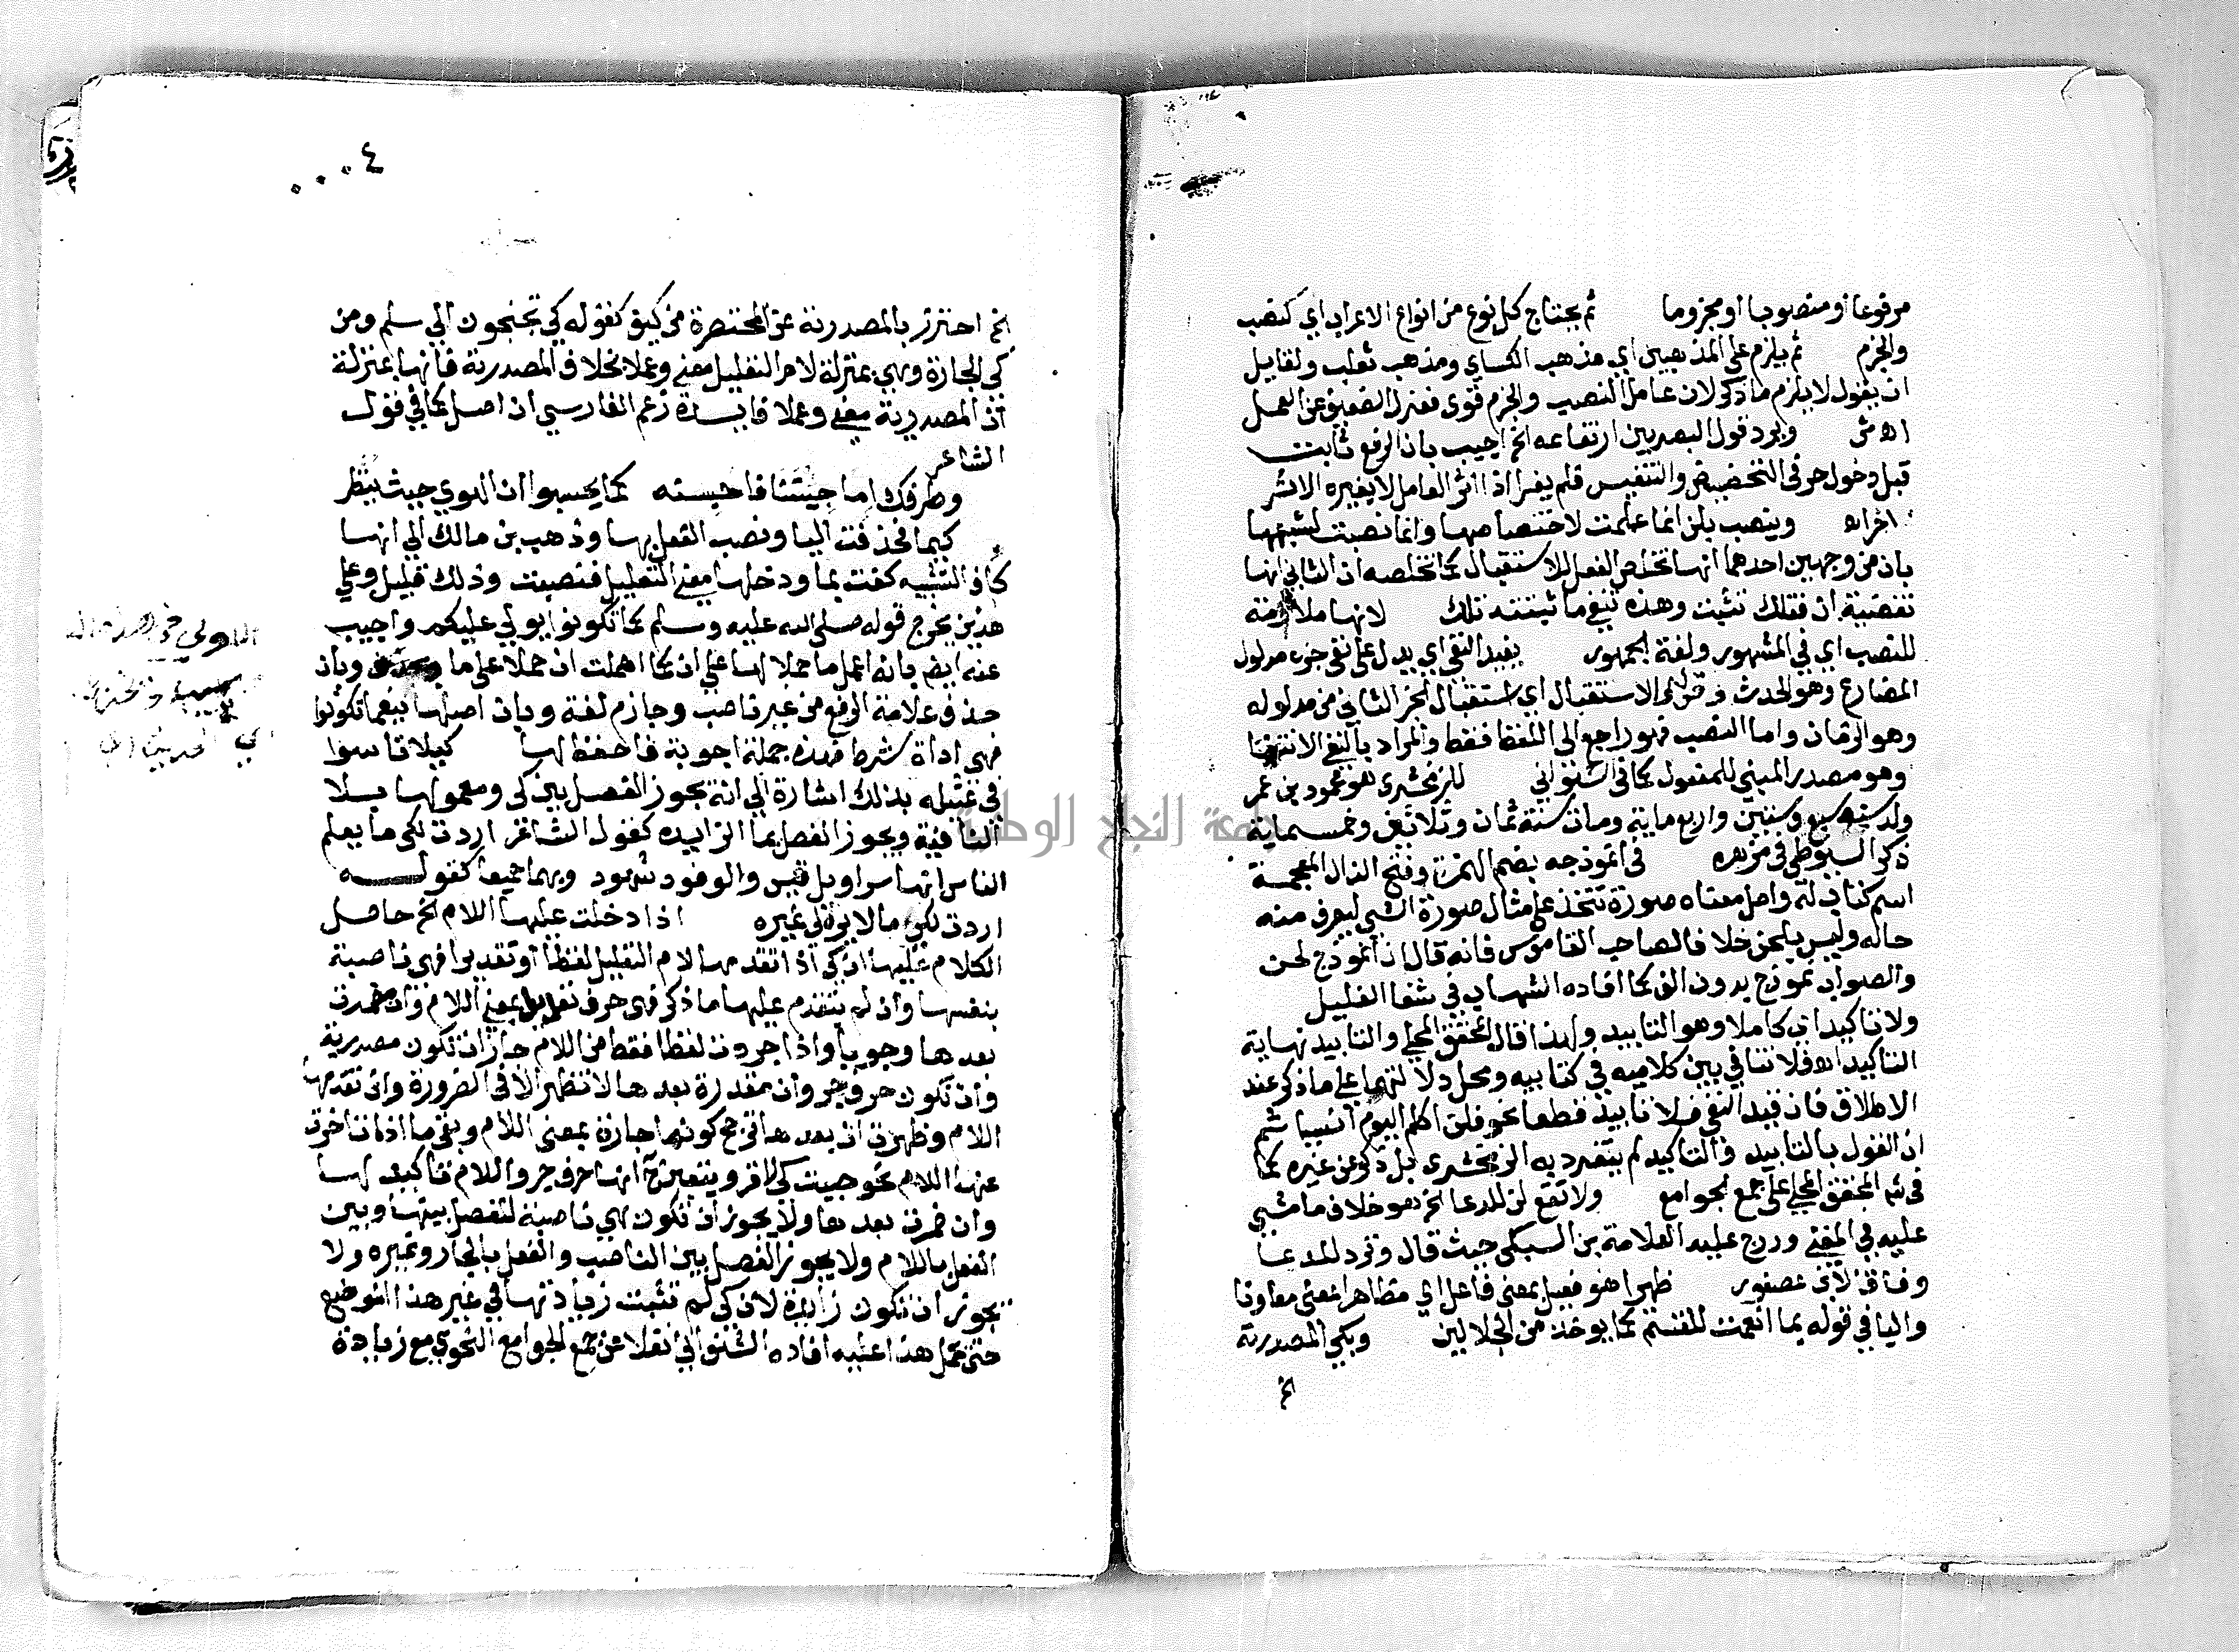 مرفوعا او منصوبا او مجزوما ثم يحتاج كل نوع من انواع الاعراب اي كنصب
والجزم ثم يلزم على المذهبين اي مذهب الكساي ومذهب ثعلب ولقايل
ان يقول لا يلزم ما ذكر لان عامل النصب والجزم قوي فعزل الضعيف عن العمل
اه ش ويرد قول البصريين ارتفاعه الخ اجيب بان الرفع ثابت
قبل دخول حرفي التحضيض والتنفيس فلم يغيرا اذ اثر العامل لا يغيره الاثر
اخر اه وينصب بلن انما عملت لاختصاصها وانما نصبت لشبهها
بان من وجهين احدهما انها تخلص الفعل للاستقبال كما تخلصه ان الثاني انها
نقيضة ان فتلك تثبت وهذه تنفي ما تثبته تلك لانها ملازمة
للنصب اي في المشهور ولغة الجمهور يفيد النفي اي يدل على نفي جزء مدلول
المضارع وهو الحدث وقوله والاستقبال اي استقبال الجز الثاني من مدلوله
وهو الزمان واما النصب فهو راجع الى اللفظ فقط والمراد بالنفي الانتفا
وهو مصدر المبني للمفعول كما في الشنواني للزمخشري هو محمود بن عمر
ولد سنة سبع وستين واربع ماية ومات سنة ثمان وثلاثين وخمسماية
ذكر السيوطي في مزهره في انموذجه بضم الهمزة وفتح الذال المعجمة
اسم كتاب له واصل معناه صورة تتخذ على مثال صورة الشي ليعرف منه
حاله وليس بلحن خلافا لصاحب القاموس فانه قال ان انموذج لحن
والصواب نموذج بدون الف كما افاده الشهاب في شفا الغليل
ولا تاكيدا اي كاملا وهو التابيد ولهذا قال المحقق المحلي والتابيد نهاية
التاكيد اه فلا تنافي بين كلاميه في كتابيه ومحل دلالتهما على ما ذكر عند
الاطلاق فان قيد النفي فلا تابيد قطعا نحو فلن اكلم اليوم انسيا ثم
ان القول بالتابيد والتاكيد لم يتفرد به الزمخشري بل ذكر عن غيره كما
في شر المحقق المحلي على جمع الجوامع ولا تقع لن للدعا الخ هو خلاف ما مشي
عليه في المغني ودرج عليه العلامة بن السبكي حيث قال وترد للدعا
وفاقا لابن عصفور ظهيرا هو فعيل بمعنى فاعل اي مظاهرا بمعنى معاونا
والبا في قوله بما انعمت للقسم كما يوخذ من الجلالين وبكي المصدرية
الخ
٠٠٠٤
الخ احترز بالمصدرية عن المختصرة من كيف كقوله كي تجنحون الي سلم ومن
كي الجارة وهي بمنزلة لام التعليل معنى وعملا بخلاف المصدرية فانها بمنزلة
ان المصدرية معنى وعملا فايدة زعم الفارسي ان اصل كما في قول
الشاعر
وطرفك اما جيتنا فاحبسنه كما يحسبوا ان الهوي حيث ينظر
كيما فحذفت اليا ونصب الفعل بها وذهب بن مالك الي انها
كاف التشبيه كفت بما ودخلها معنى التعليل فنصبت وذلك قليل وعلي
هذين يخرج قوله صلى الله عليه وسلم كما تكونوا يولي عليكم واجيب
عنه ايض بانه اعمل ما حملا لها علي ان كما اهملت ان حملا على ما وبان
حذف علامة الرفع من غير ناصب وجازم لغة وبان اصلها كيفما تكونوا
فهي اداة شرط فهذه جملة اجوبة فاحفظها كيلا تاسوا
في تمثيله بذلك اشارة الي انه يجوز الفصل بين كي ومعمولها بلا
النافية ويجوز الفصل بما الزايده كقول الشاعر اردت لكي ما يعلم
الناس انها سراويل قيس والوفود شهود وبهما جميعا كقوله
اردت لكي ما لا غيره اذا دخلت عليها اللام الخ حاصل
الكلام عليها ان كي اذا تقدمها لام التعليل لفظا او تقديرا فهي ناصبة
بنفسها وان لم يتقدم عليها ما ذكر فهي حرف تعليل بمعنى اللام وان مضمرة
بعدها وجوبا واذا جردت لفظا فقط من اللام جاز ان تكون مصدرية
وان تكون حرف جر وان مقدرة بعدها لا تظهر الا في الضرورة وان تقدمها
اللام وظهرت ان بعدها ترجح كونها جارة بمعنى اللام وبقي ما اذا تاخرت
عنها اللام نحو جيت كي لاقر ويتعين ح انها حرف جر واللام تاكيد لها
وان ضمرت بعدها ولا يجوز ان تكون هي ناصبة لتفصل بينها وبين
الفعل باللام ولا يجوز الفصل بين الناصب والفعل بالجار وغيره ولا
يجوز ان تكون زايدة لان كي لم تثبت زيادتها في غير هذا الموضع
حتى يحمل هذا عليه افاده الشنواني نقلا عن جمع الجوامع النحوي مع زيادة